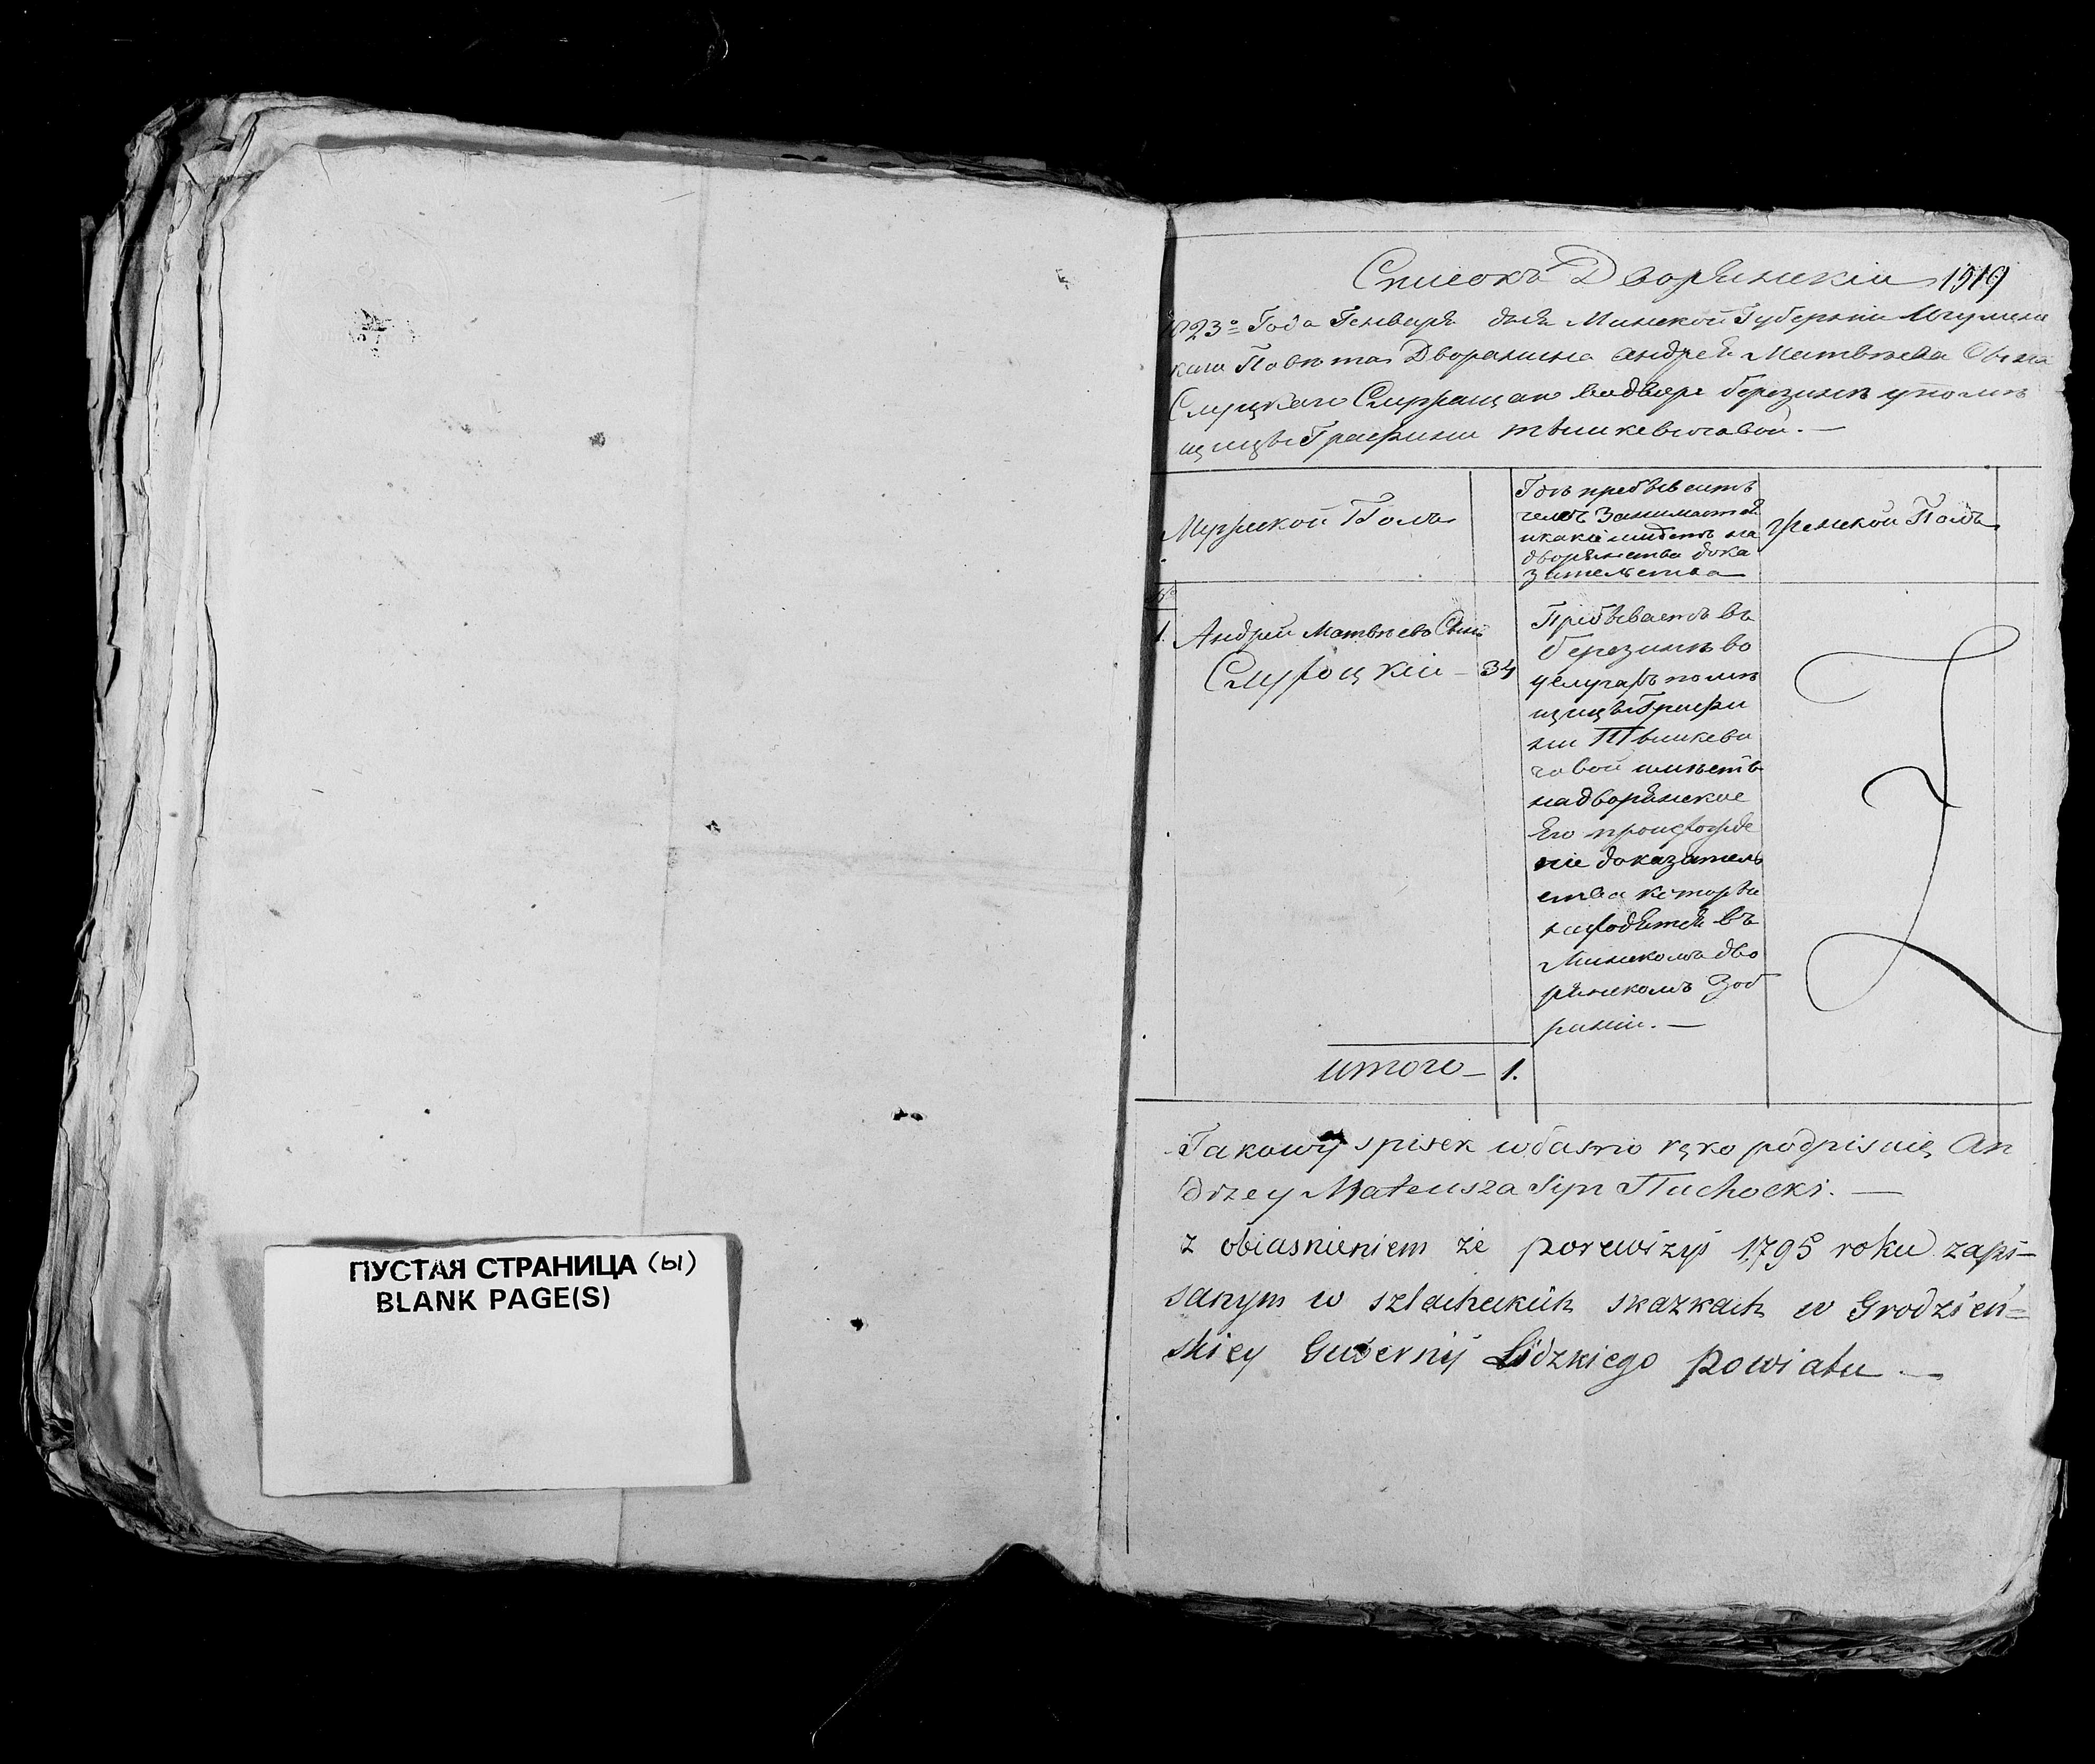 ПУСТАЯ СТРАНИЦА (Ы)
BLANK PAGE(S)
Списокъ Дворянскій 1519
1823º Года Генваря дня Минской Губерніи Игумен
скаго Повѣта Дворянина Андрея Матвѣева Сына
водворѣ березинѣ у помѣ
щицы Графини Тышкевичовой. —
Мужской Полъ
Где пребываетъ
чемъ Занимается
и какіе имѣетъ на
дворянство дока
зательства
Женской Полъ
№
1. Андрей Матвѣевъ Сынъ
Слухоцкій — 34
Пребываетъ въ
березинѣ во
услугахъ помѣ
щицы Графи
ни Тышкеви
човой имѣетъ
на дворянское
Его происхожде
ніе доказатель
ства которые
находятся въ
Минскомъ дво
рянскомъ Соб
раніи. —
итого — 1.
Takowy spisek własno ręko podpisuię An
drzey Mateusza Syn Słuchocki. —
z obiasnieniem że porewizyi 1795 roku zapi-
sanym w szlacheckich skazkach w Grodzień=
skiey Gubernij Lidzkiego Powiatu —